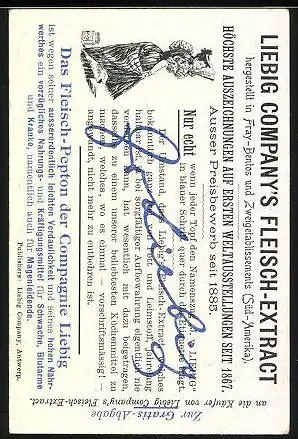 LIEBIG COMPANY'S FLEISCH-EXTRACT
hergestellt in Fray-Bentos und Zweigetablissements (Süd-Amerika).
HÖCHSTE AUSZEICHNUNGEN AUF ERSTEN WELTAUSSTELLUNGEN SEIT 1867.
Ausser Preisbewerb seit 1885.
Nur echt, wenn jeder Topf den Namenszug J. v. LIEBIG
in blauer Schrift quer durch die Etiquette trägt.
Der Umstand, dass Liebig's Fleisch-Extract, welches
bekanntlich ganz frei von Fett und Leimstoff, jahrelang
haltbar ist, bei sorgfältiger Aufbewahrung eigentlich nie
verdirbt, hat wesentlich mit dazu beigetragen,
dasselbe zu einem unserer beliebtesten Küchenmittel zu
machen, welches, wo es einmal — vorschriftsmässig! —
angewandt, nicht mehr zu entbehren ist.
Das Fleisch-Pepton der Compagnie Liebig
ist wegen seiner ausserordentlich leichten Verdaulichkeit und seines hohen Nähr-
werthes ein vorzügliches Nahrungs- und Kräftigungsmittel für Schwache, Blutarme
und Kranke, namentlich auch für Magenleidende.
Publishers: Liebig Company, Antwerp.
Zur Gratis-Abgabe
an die Käufer von Liebig Company's Fleisch-Extract.